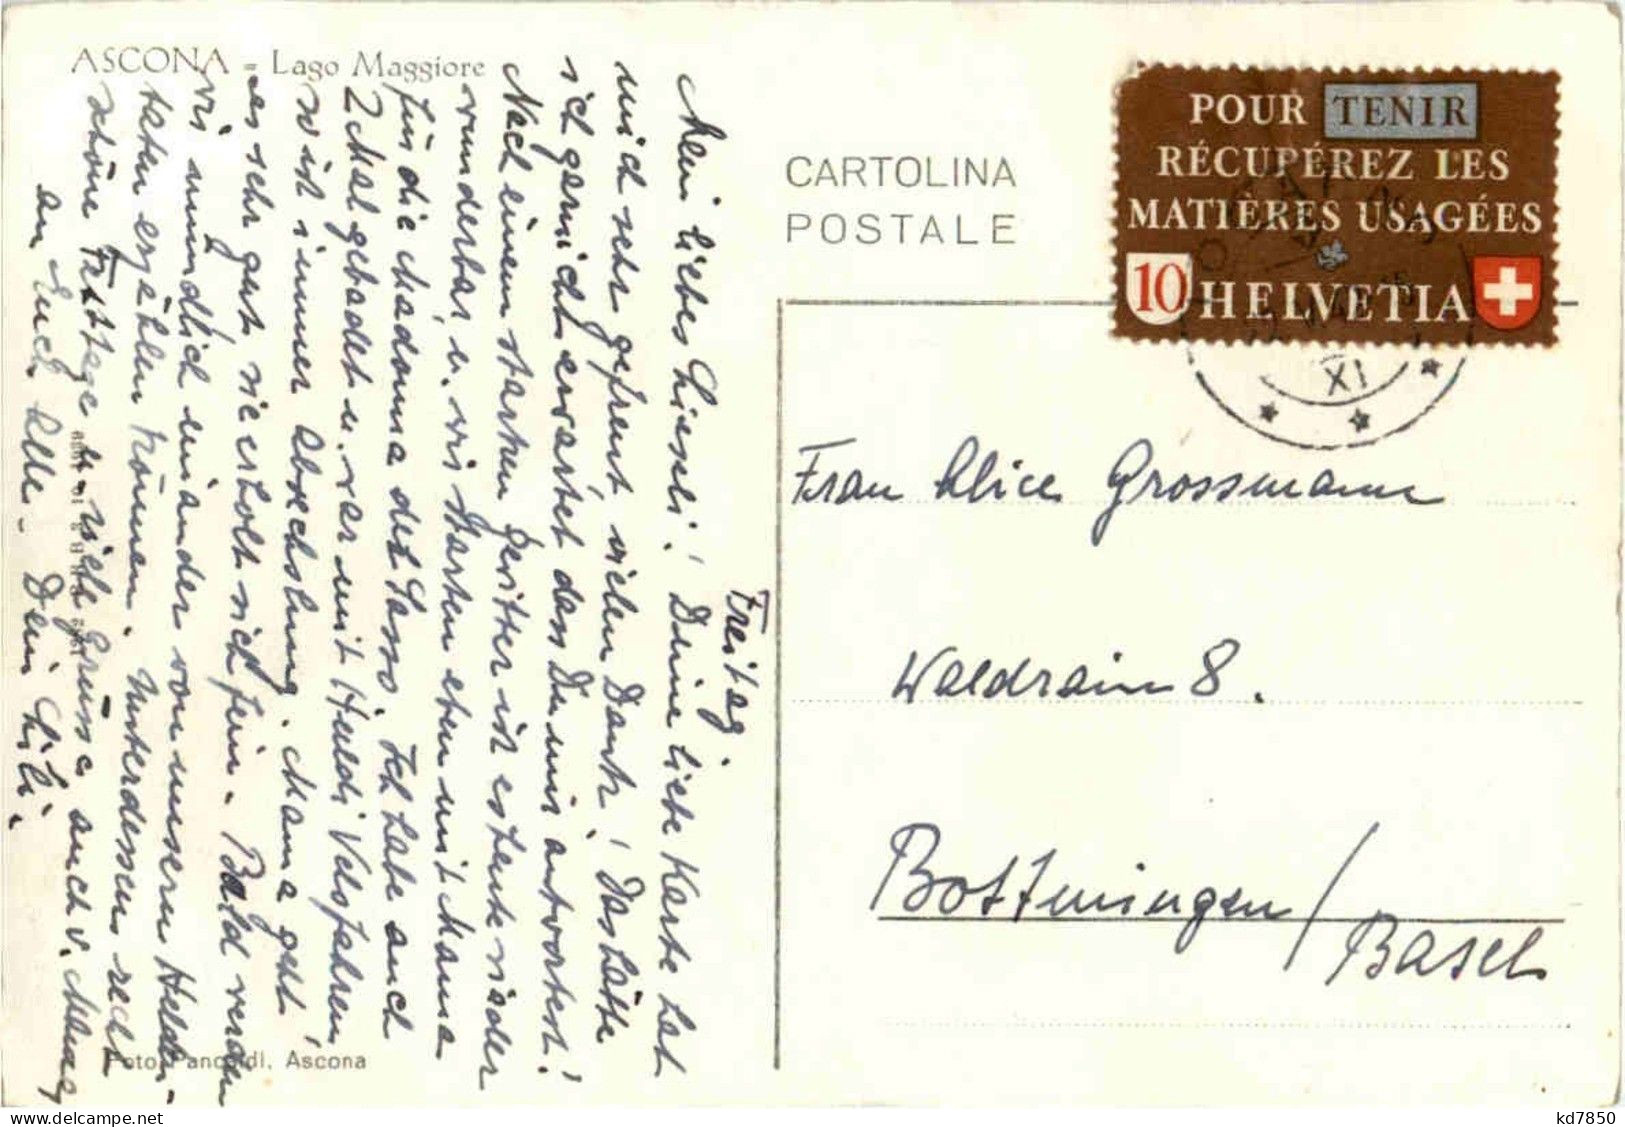 ASCONA - Lago Maggiore
CARTOLINA
POSTALE
POUR TENIR
RÉCUPÉREZ LES
MATIÈRES USAGÉES
10 HELVETIA
XI
Freitag.
Mein liebes Lieseli! Deine liebe Karte hat
mich sehr gefreut vielen Dank! Das hätte
ich gar nicht erwartet dass Du mir antwortest!
Nach einem starken Gewitter ist es heute wieder
wunderbar, u. wir starten eben mit Mama
für die Madonna del Sasso. Ich habe auch
2 Mal gebadet u. war mit Heldi Velofahren
so ist immer Abwechslung. Mama geht
es sehr gut sie erholt sich fein. Bald werden
wir mündlich einander von unsern Helden-
taten erzählen können. Unterdessen recht
schöne Festtage u. viele Grüsse auch v. Mama
an Euch Alle. Dein Lili.
Foto Pancaldi, Ascona
Frau Alice Grossmann
Waldrain 8.
Bottmingen/
Basel
kd7850